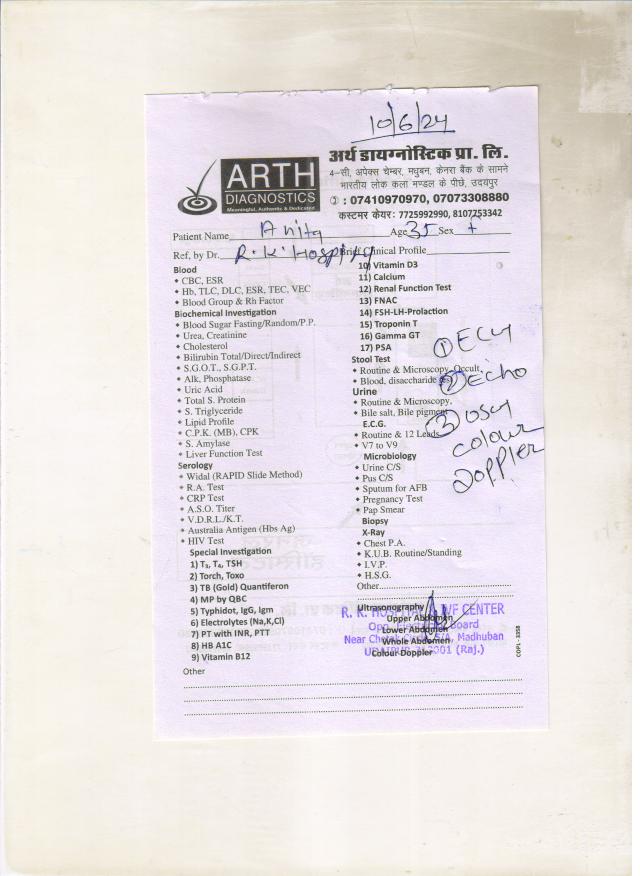 10/6/24
ARTH
DIAGNOSTICS
Meaningful, Authentic & Dedicated
अर्थ डायग्नोस्टिक प्रा. लि.
4-सी, अपेक्स चेम्बर, मधुबन, केनरा बैंक के सामने
भारतीय लोक कला मण्डल के पीछे, उदयपुर
: 07410970970, 07073308880
कस्टमर केयर: 7725992990, 8107753342
Patient Name Anita Age 35 Sex f
Ref, by Dr. R.K. Hospital Brief Clinical Profile
Blood
• CBC, ESR
• Hb, TLC, DLC, ESR, TEC, VEC
• Blood Group & Rh Factor
Biochemical Investigation
• Blood Sugar Fasting/Random/P.P.
• Urea, Creatinine
• Cholesterol
• Bilirubin Total/Direct/Indirect
• S.G.O.T., S.G.P.T.
• Alk, Phosphatase
• Uric Acid
• Total S. Protein
• S. Triglyceride
• Lipid Profile
• C.P.K. (MB), CPK
• S. Amylase
• Liver Function Test
Serology
• Widal (RAPID Slide Method)
• R.A. Test
• CRP Test
• A.S.O. Titer
• V.D.R.L./K.T.
• Australia Antigen (Hbs Ag)
• HIV Test
Special Investigation
1) T3, T4, TSH
2) Torch, Toxo
3) TB (Gold) Quantiferon
4) MP by QBC
5) Typhidot, IgG, Igm
6) Electrolytes (Na,K,Cl)
7) PT with INR, PTT
8) HB A1C
9) Vitamin B12
10) Vitamin D3
11) Calcium
12) Renal Function Test
13) FNAC
14) FSH-LH-Prolaction
15) Troponin T
16) Gamma GT
17) PSA
Stool Test
• Routine & Microscopy, Occult,
• Blood, disaccharide
Urine
• Routine & Microscopy,
• Bile salt, Bile pigment
E.C.G.
• Routine & 12 Leads
• V7 to V9
Microbiology
• Urine C/S
• Pus C/S
• Sputum for AFB
• Pregnancy Test
• Pap Smear
Biopsy
X-Ray
• Chest P.A.
• K.U.B. Routine/Standing
• I.V.P.
• H.S.G.
Other
Ultrasonography
Upper Abdomen
Lower Abdomen
Whole Abdomen
Colour Doppler
① ECG
② Echo
③ USG
colour
Doppler
R. K. HOSPITAL IVF CENTER
Board
Madhuban
UDAIPUR 313001 (Raj.)
COPL - 3358
Other